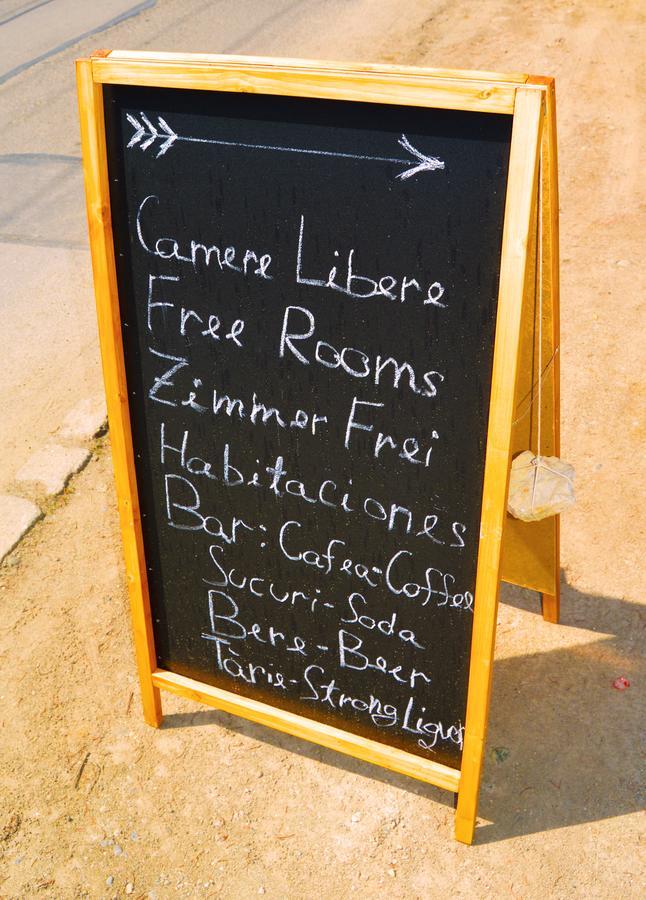 Camere Libere
Free Rooms
Zimmer Frei
Habitaciones
Bar: Cafea-Coffee
Sucuri-Soda
Bere-Beer
Tărie-Strong Liquor